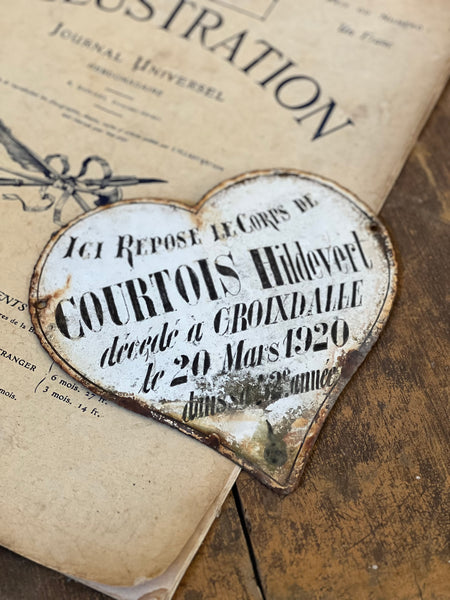 ILLUSTRATION
JOURNAL UNIVERSEL
HEBDOMADAIRE
Un Franc
ICI REPOSE LE CORPS DE
COURTOIS Hildevert
décédé à CROIXDALLE
le 20 Mars 1920
dans sa 52e année
ENTS
TRANGER
6 mois. 27 fr.
3 mois. 14 fr.